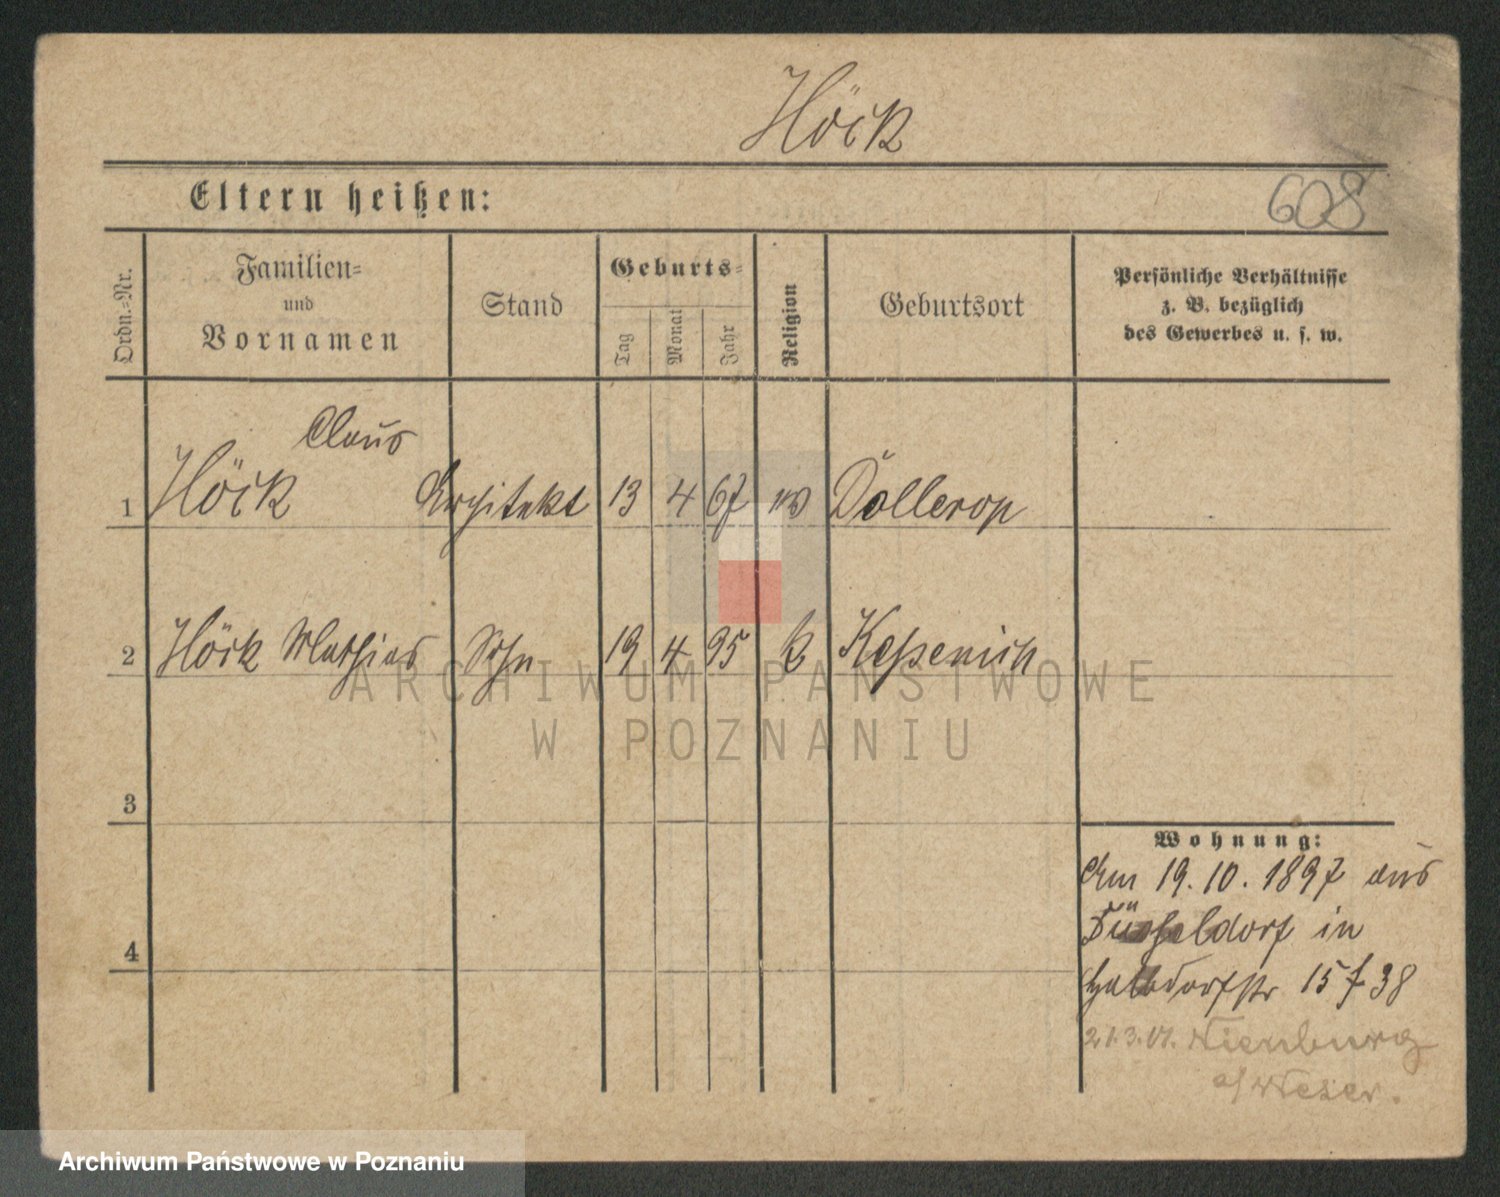 Höck
Eltern heißen:
608
Ordn.-Nr.
Familien-
und
Vornamen
Stand
Geburts-
Tag
Monat
Jahr
Religion
Geburtsort
Persönliche Verhältnisse
z. B. bezüglich
des Gewerbes u. s. w.
Claus
1 Höck Architekt 13 4 67 Dollerop
2 Höck Mathias Sohn 19 4 95 k Keßenich
3
4
Wohnung:
Am 19. 10. 1897 aus
Düsseldorf in
Halbdorfstr 15 f 38
21.3.01. Nienburg
a/Weser.
ARCHIWUM PAŃSTWOWE
W POZNANIU
Archiwum Państwowe w Poznaniu